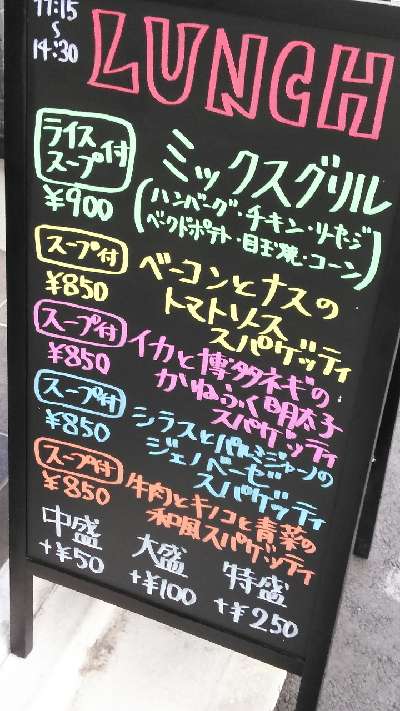 11:15
~
14:30
LUNCH
ライス
スープ付
¥900
ミックスグリル
(ハンバーグ・チキン・ソーセージ
ベークドポテト・目玉焼・コーン)
スープ付
¥850
ベーコンとナスの
トマトソース
スパゲッティ
スープ付
¥850
イカと博多ネギの
かねふく明太子
スパゲッティ
スープ付
¥850
シラスとパルミジャーノの
ジェノベーゼ
スパゲッティ
スープ付
¥850
牛肉とキノコと青菜の
和風スパゲッティ
中盛
+¥50
大盛
+¥100
特盛
+¥250